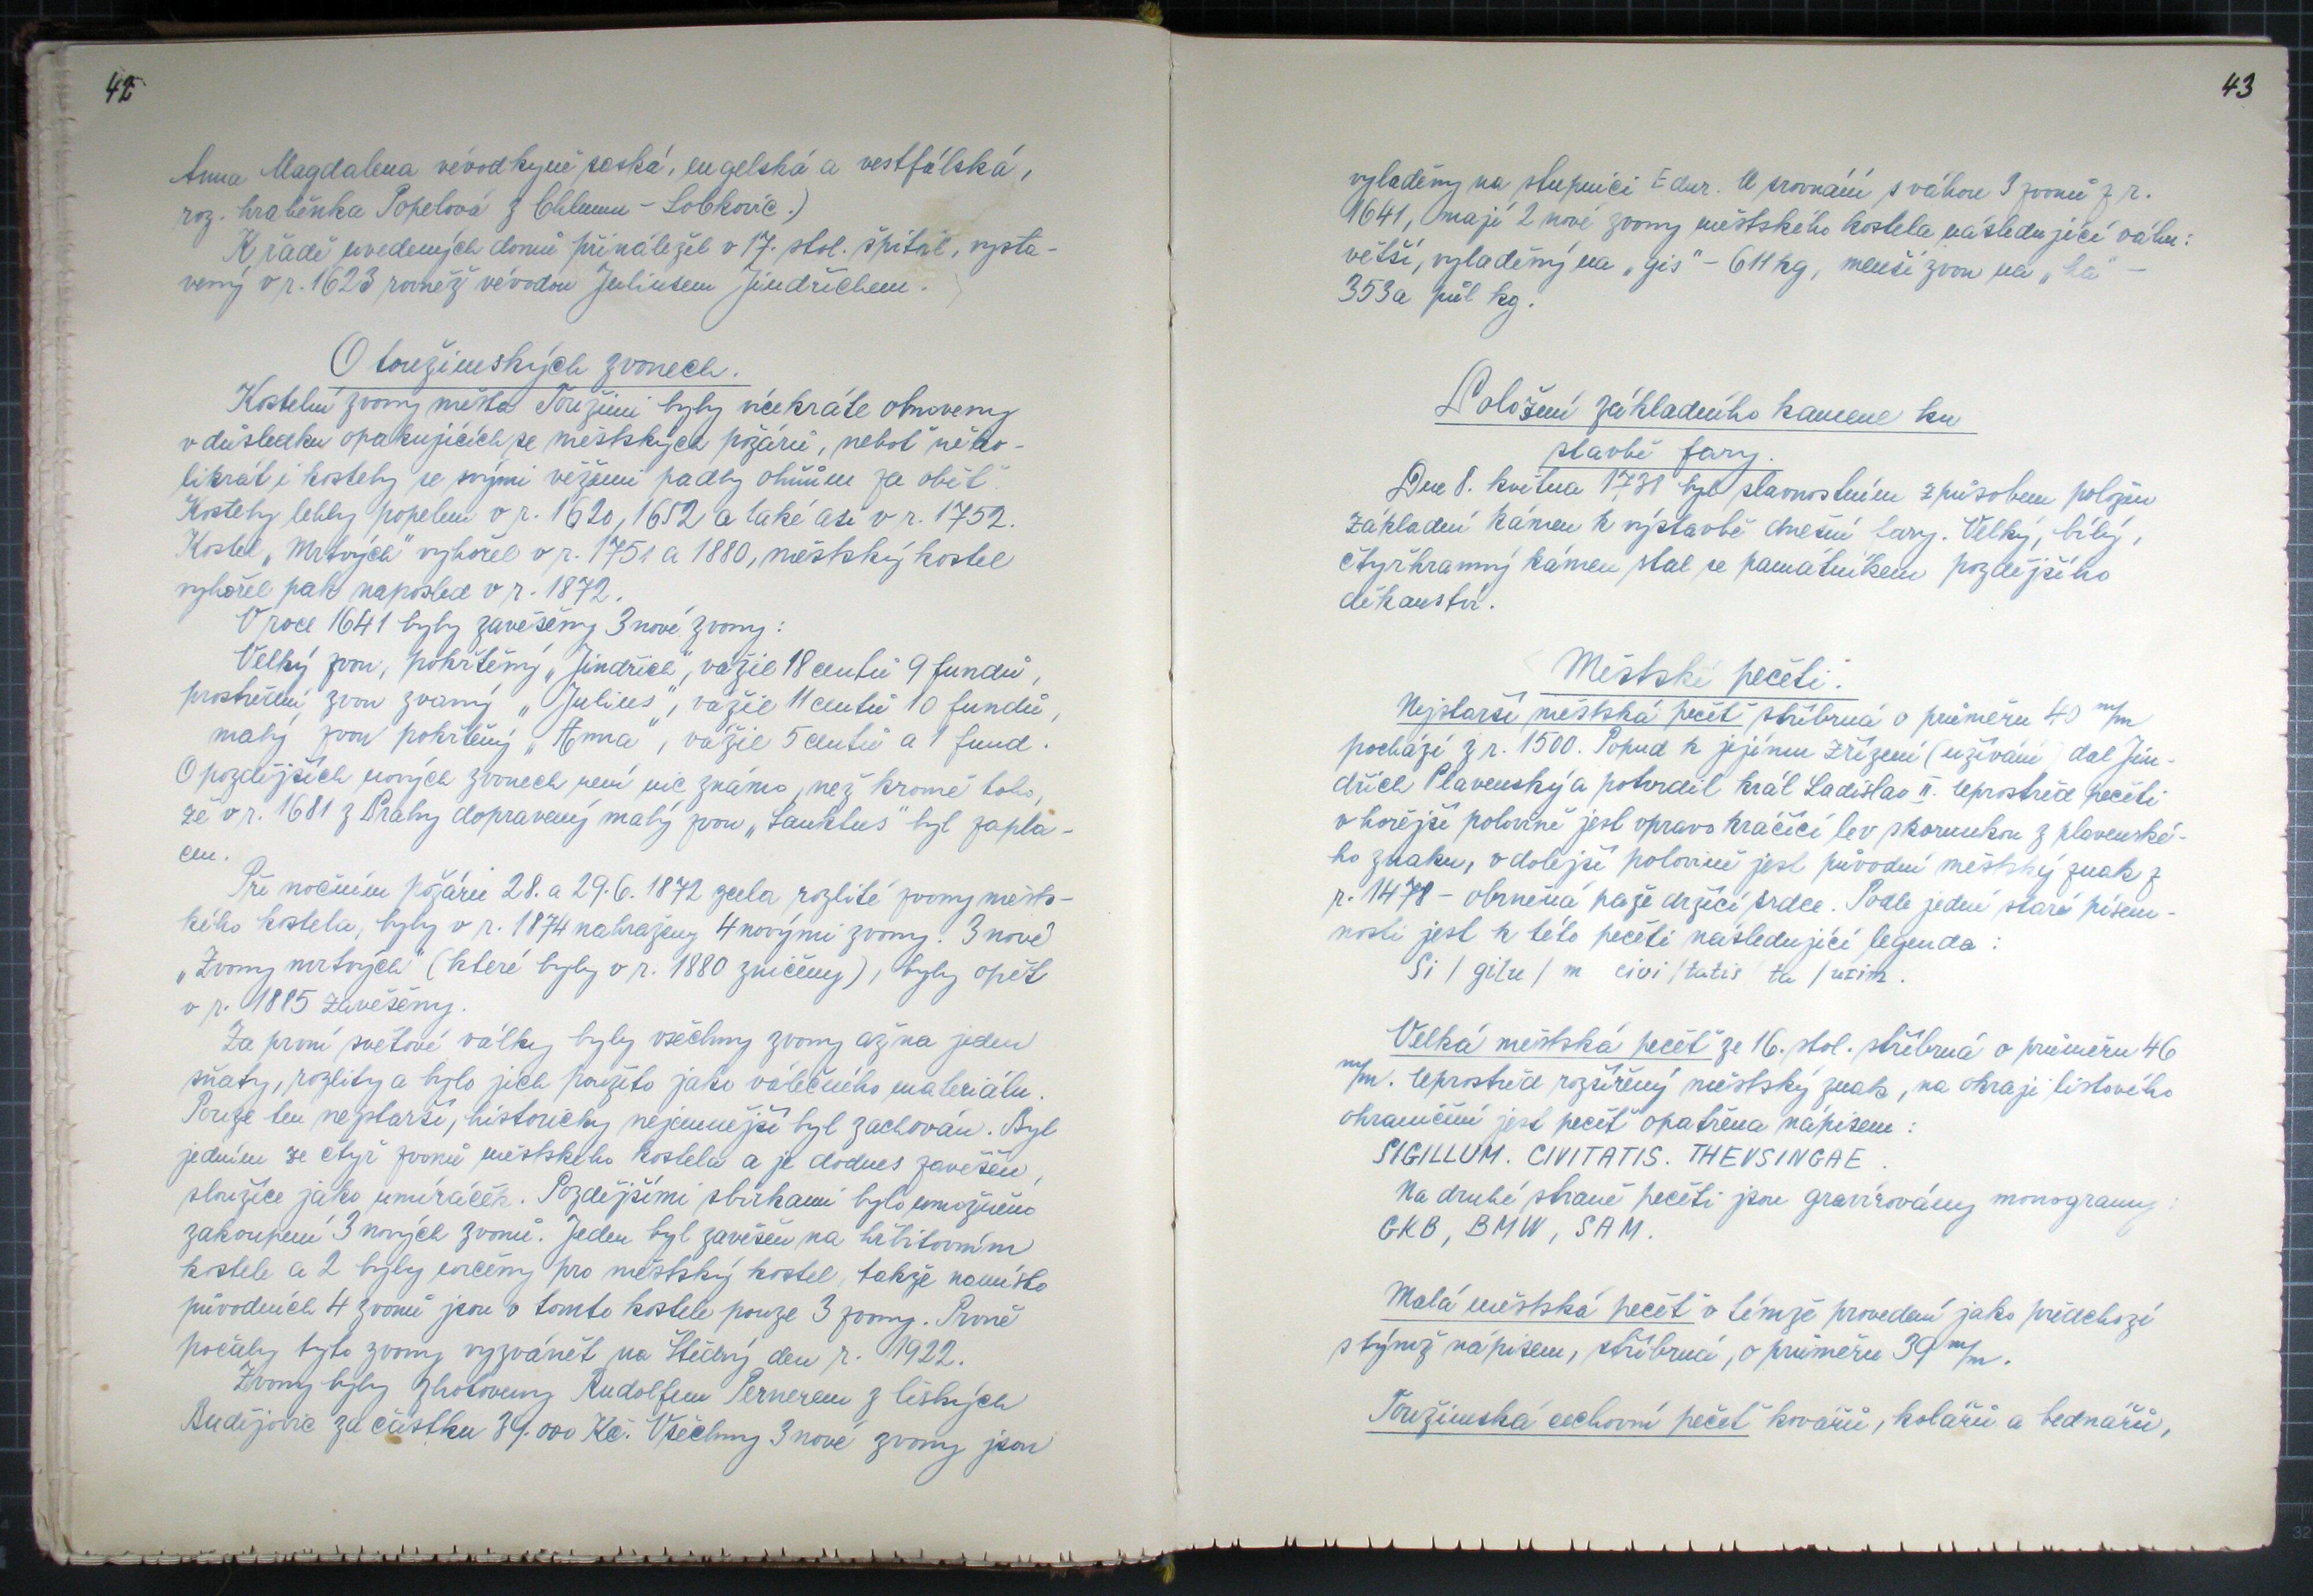 42
Anna Magdalena vévodkyně saská, engelská a vestfálská,
roz. hraběnka Popelová z Chlumu - Lobkovic.)
K řadě uvedených domů přináležel v 17. stol. špitál, vysta-
vený v r. 1623 rovněž vévodou Juliusem Jindřichem.
O toužimských zvonech.
Kostelní zvony města Toužimi byly vícekráte obnoveny
v důsledku opakujících se městských požárů, neboť něko-
likrát i kostely se svými věžemi padly ohňům za oběť.
Kostely lehly popelem v r. 1620, 1652 a také asi v r. 1752.
Kostel „Mrtvých" vyhořel v r. 1751 a 1880, městský kostel
vyhořel pak naposled v r. 1872.
V roce 1641 byly zavěšeny 3 nové zvony:
Velký zvon, pokřtěný „Jindřich", vážil 18 centů 9 fundů,
prostřední zvon zvaný „Julius", vážil 11 centů 10 fundů,
malý zvon pokřtěný „Anna", vážil 5 centů a 1 fund.
O pozdějších nových zvonech není nic známo, než kromě toho,
že v r. 1681 z Prahy dopravený malý zvon „Sanktus" byl zapla-
cen.
Při nočním požáru 28. a 29. 6. 1872 zcela rozlité zvony měst-
kého kostela, byly v r. 1874 nahraženy 4 novými zvony. 3 nové
„Zvony mrtvých" (které byly v r. 1880 zničeny), byly opět
v r. 1885 zavěšeny.
Za první světové války byly všechny zvony až na jeden
sňaty, rozlity a bylo jich použito jako válečného materiálu.
Pouze ten nejstarší, historicky nejcennější byl zachován. Byl
jedním ze čtyř zvonů městského kostela a je dodnes zavěšen,
sloužíce jako umíráček. Pozdějšími sbírkami bylo umožněno
zakoupení 3 nových zvonů. Jeden byl zavěšen na hřbitovním
kostele a 2 byly určeny pro městský kostel, takže namísto
původních 4 zvonů jsou v tomto kostele pouze 3 zvony. Prvně
počaly tyto zvony vyzvánět na Štědrý den r. 1922.
Zvony byly zhotoveny Rudolfem Pernerem z Českých
Budějovic za částku 39.000 Kč. Všechny 3 nové zvony jsou
43
vyladěny na stupnici E dur. U srovnání s váhou 3 zvonů z r.
1641, mají 2 nové zvony městského kostela následující váhu:
větší, vyladěný na „gis" - 611 kg, menší zvon na „há" -
353 a půl kg.
Položení základního kamene ku
stavbě fary.
Dne 8. května 1731 byl slavnostním způsobem položen
základní kámen k výstavbě dnešní fary. Velký, bílý,
čtyřhranný kámen stal se památníkem pozdějšího
děkanství.
Městské pečeti.
Nejstarší městská pečeť stříbrná o průměru 40 m/m
pochází z r. 1500. Popud k jejímu zřízení (užívání) dal Jin-
dřich Plavenský a potvrdil král Ladislav II. Uprostřed pečeti
v hořejší polovině jest vpravo kráčící lev s korunkou z plavenské-
ho znaku, v dolejší polovině jest původní městský znak z
r. 1478 - obrněná paže držící srdce. Podle jedné staré písem-
nosti jest k této pečeti následující legenda:
Si / gilu / m civi / tatis tu / uzim.
Velká městská pečeť ze 16. stol. stříbrná o průměru 46
m/m. Uprostřed rozšířený městský znak, na okraji listového
ohraničení jest pečeť opatřena nápisem:
SIGILLUM. CIVITATIS. THEVSINGAE.
Na druhé straně pečeti jsou gravírovány monogramy:
GKB, BMW, SAM.
Malá městská pečeť v témže provedení jako předchozí
s týmž nápisem, stříbrná, o průměru 39 m/m.
Toužimská cechovní pečeť kovářů, kolářů a bednářů,